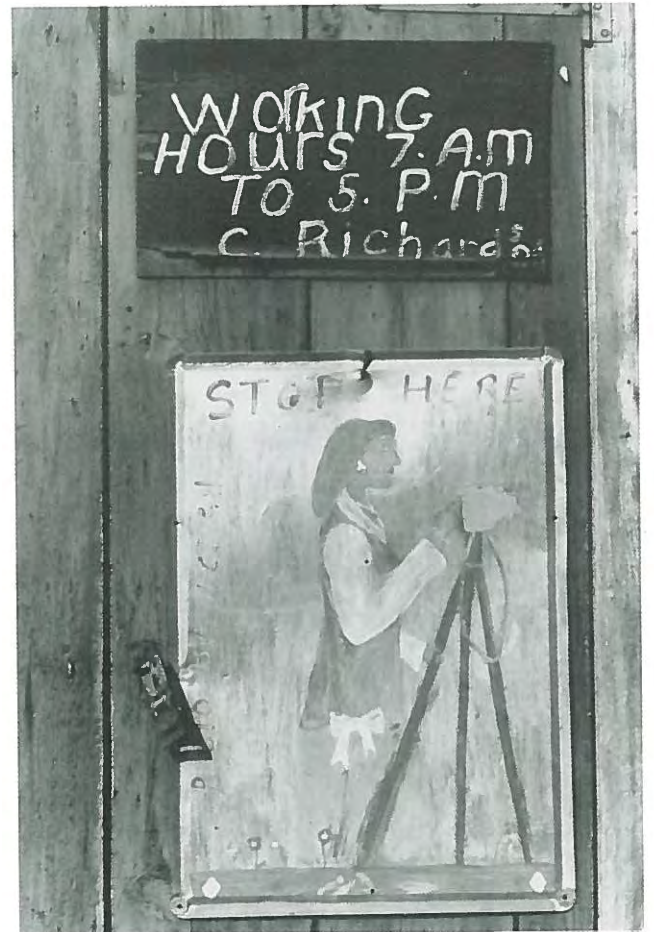 WorkinG
HOurs 7.A.m
TO 5. P.M
C. Richards
STOP HERE